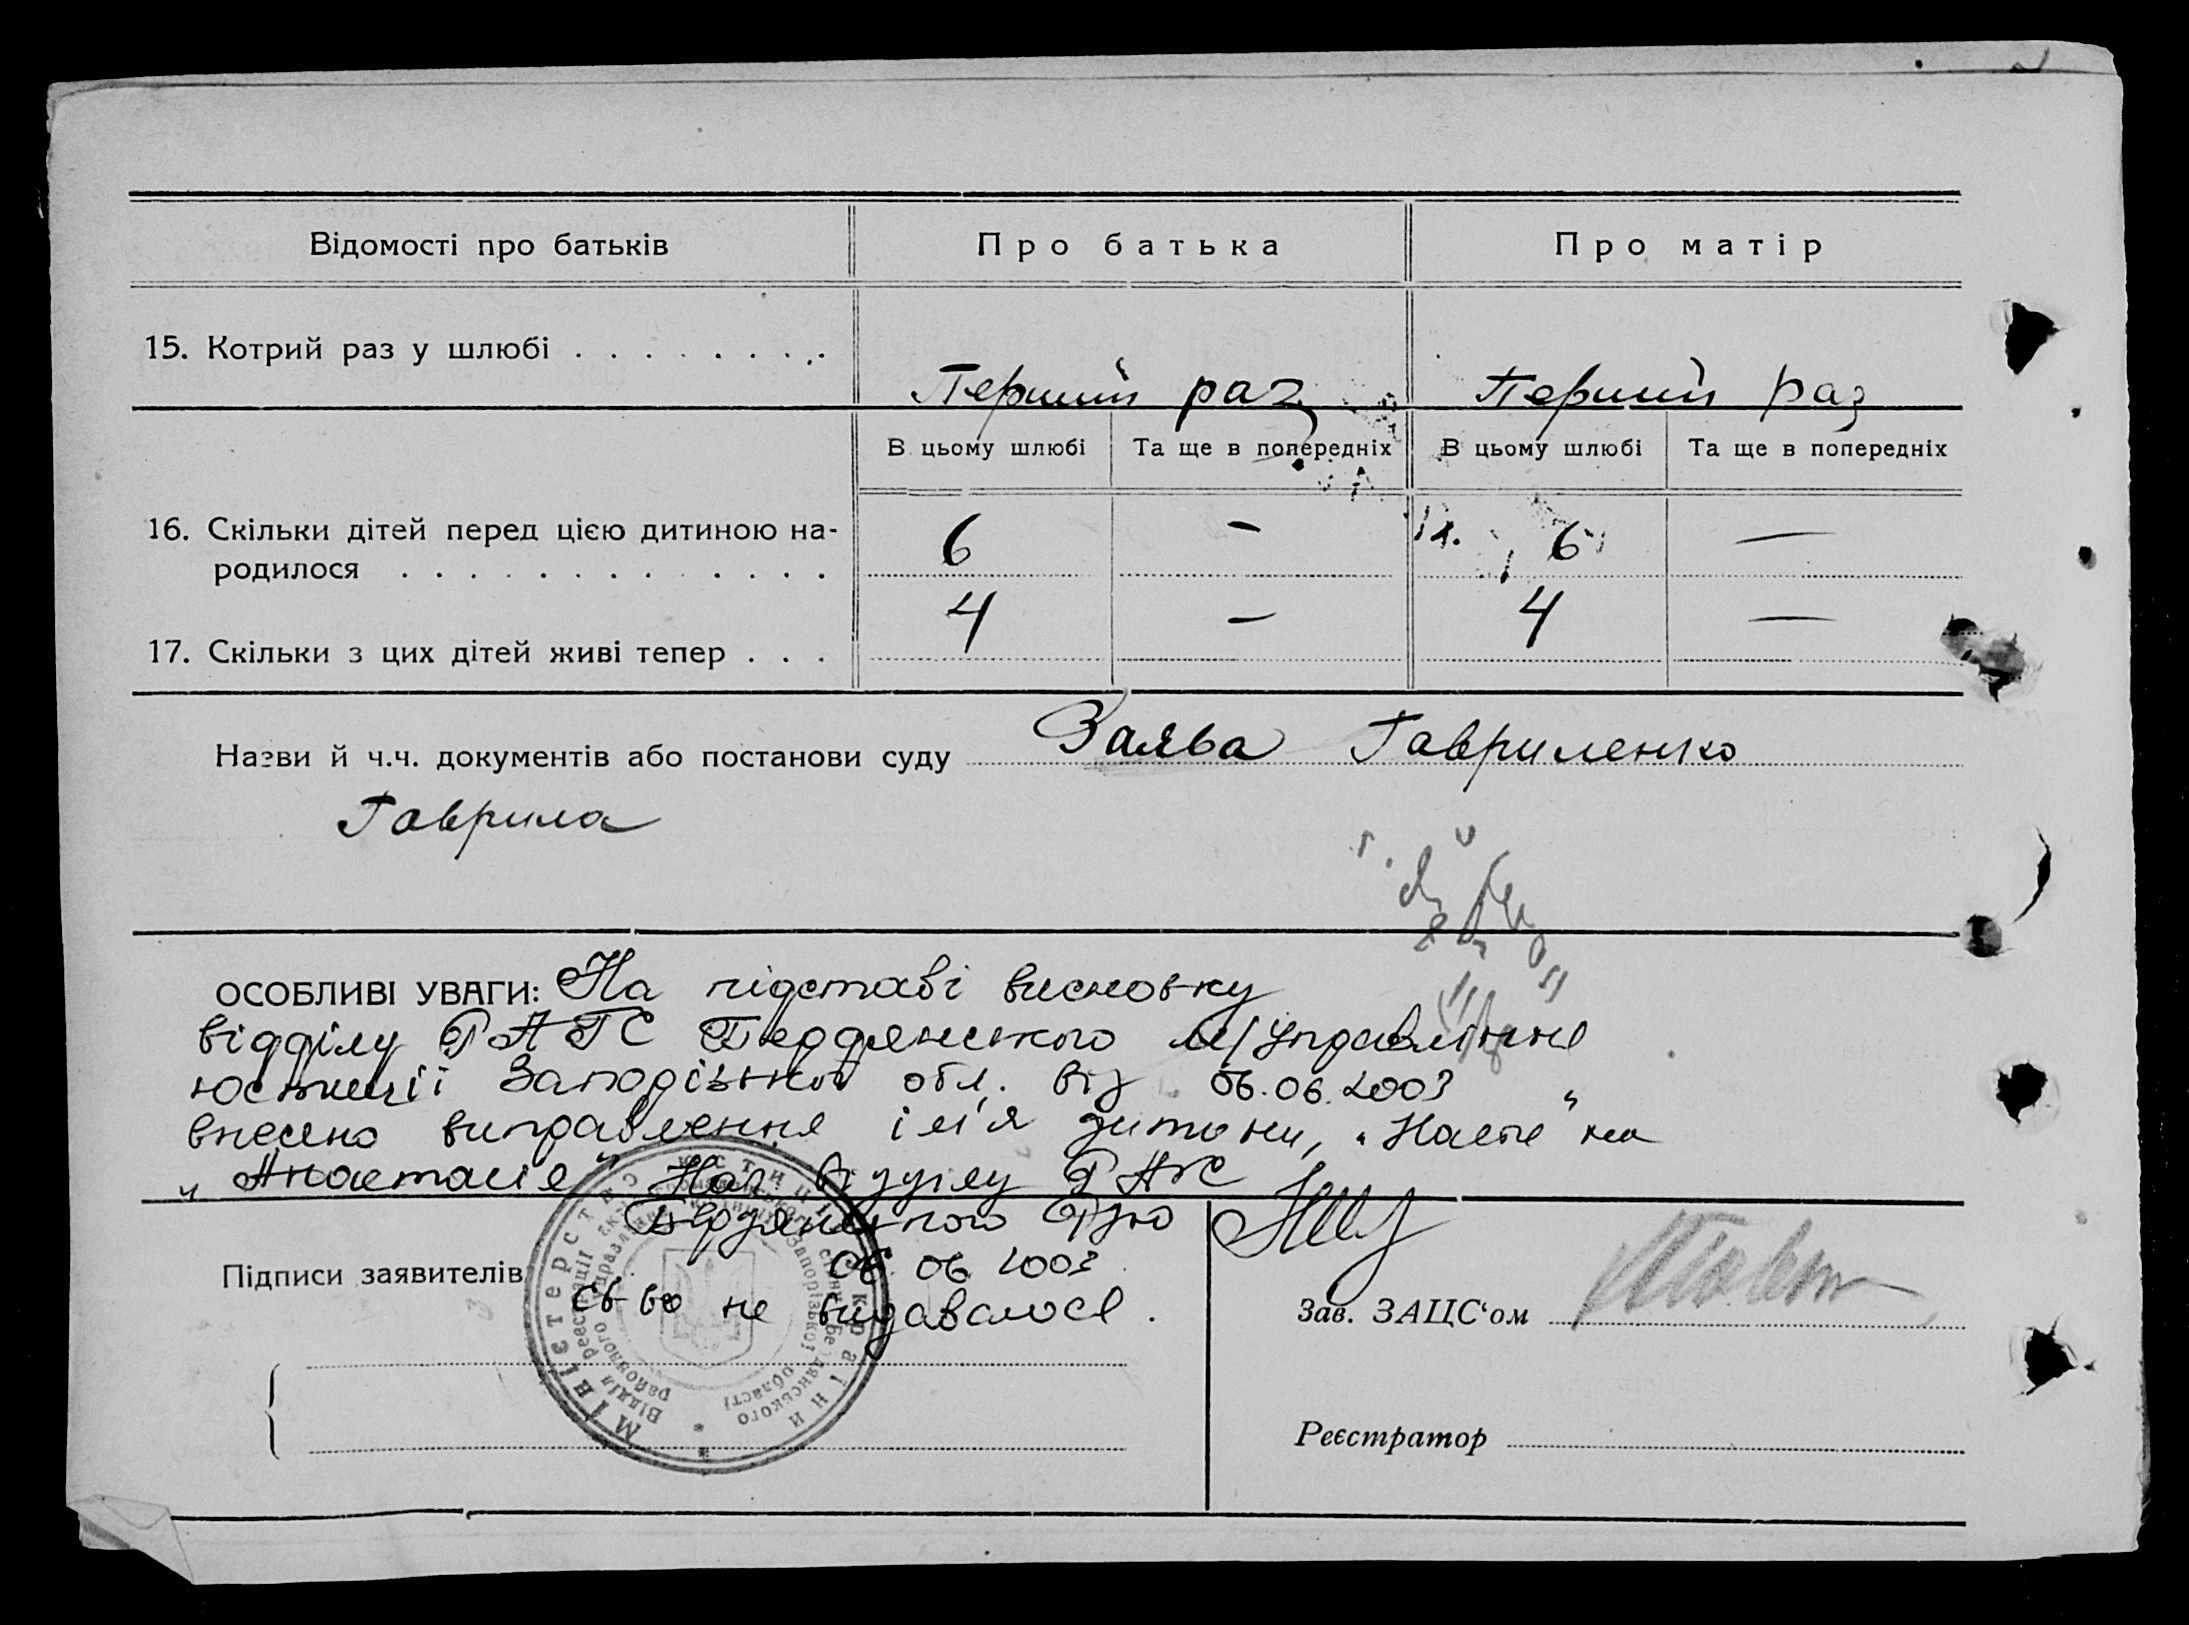 Відомості про батьків Про батька Про матір
15. Котрий раз у шлюбі Перший раз Перший раз
В цьому шлюбі Та ще в попередніх В цьому шлюбі Та ще в попередніх
16. Скільки дітей перед цією дитиною на-
родилося 6 — 6 —
17. Скільки з цих дітей живі тепер 4 — 4 —
Назви й ч.ч. документів або постанови суду Заява Гавриленко
Гаврила
ОСОБЛИВІ УВАГИ: На підставі висновку
відділу РАГС Бердянського управління
юстиції Запорізької обл. від 06.06.2003
внесено виправлення ім'я дитини, „Настя" на
„Анастасія" Нач. відділу РАГС
Бердянського РУЮ
06.06.2003
Підписи заявителів
св-во не видавалося.
Зав. ЗАЦС‘ом
Реєстратор
Міністерство юстиції України
Відділ реєстрації
Бердянського
районного
Запорізької області